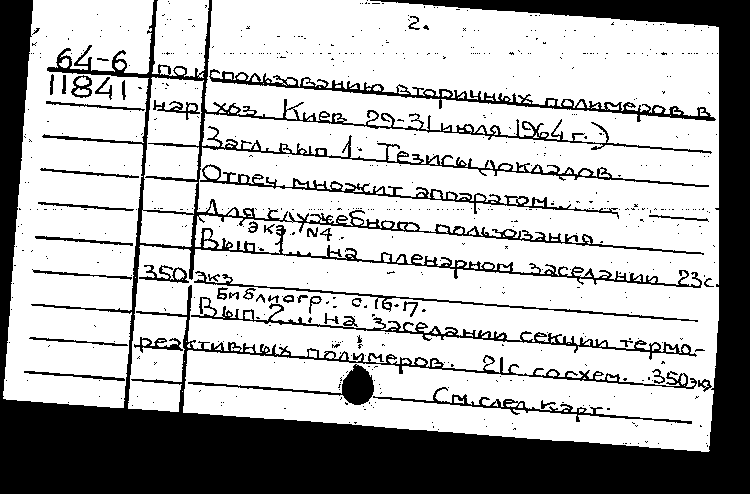 2.
64-6
11841
по использованию вторичных полимеров в
нар хоз. Киев 29-31 июля 1964 г.)
Загл. вып 1: Тезисы докладов.
Отпеч. множит аппаратом.
Для служебного пользования.
экз. N4.
Вып. 1... на пленарном заседании 23 с.
350 экз
Библиогр.: с. 16-17.
Вып. 2... на заседании секции термо-
реактивных полимеров. 21 с. со схем. 350 экз
См. след. карт.